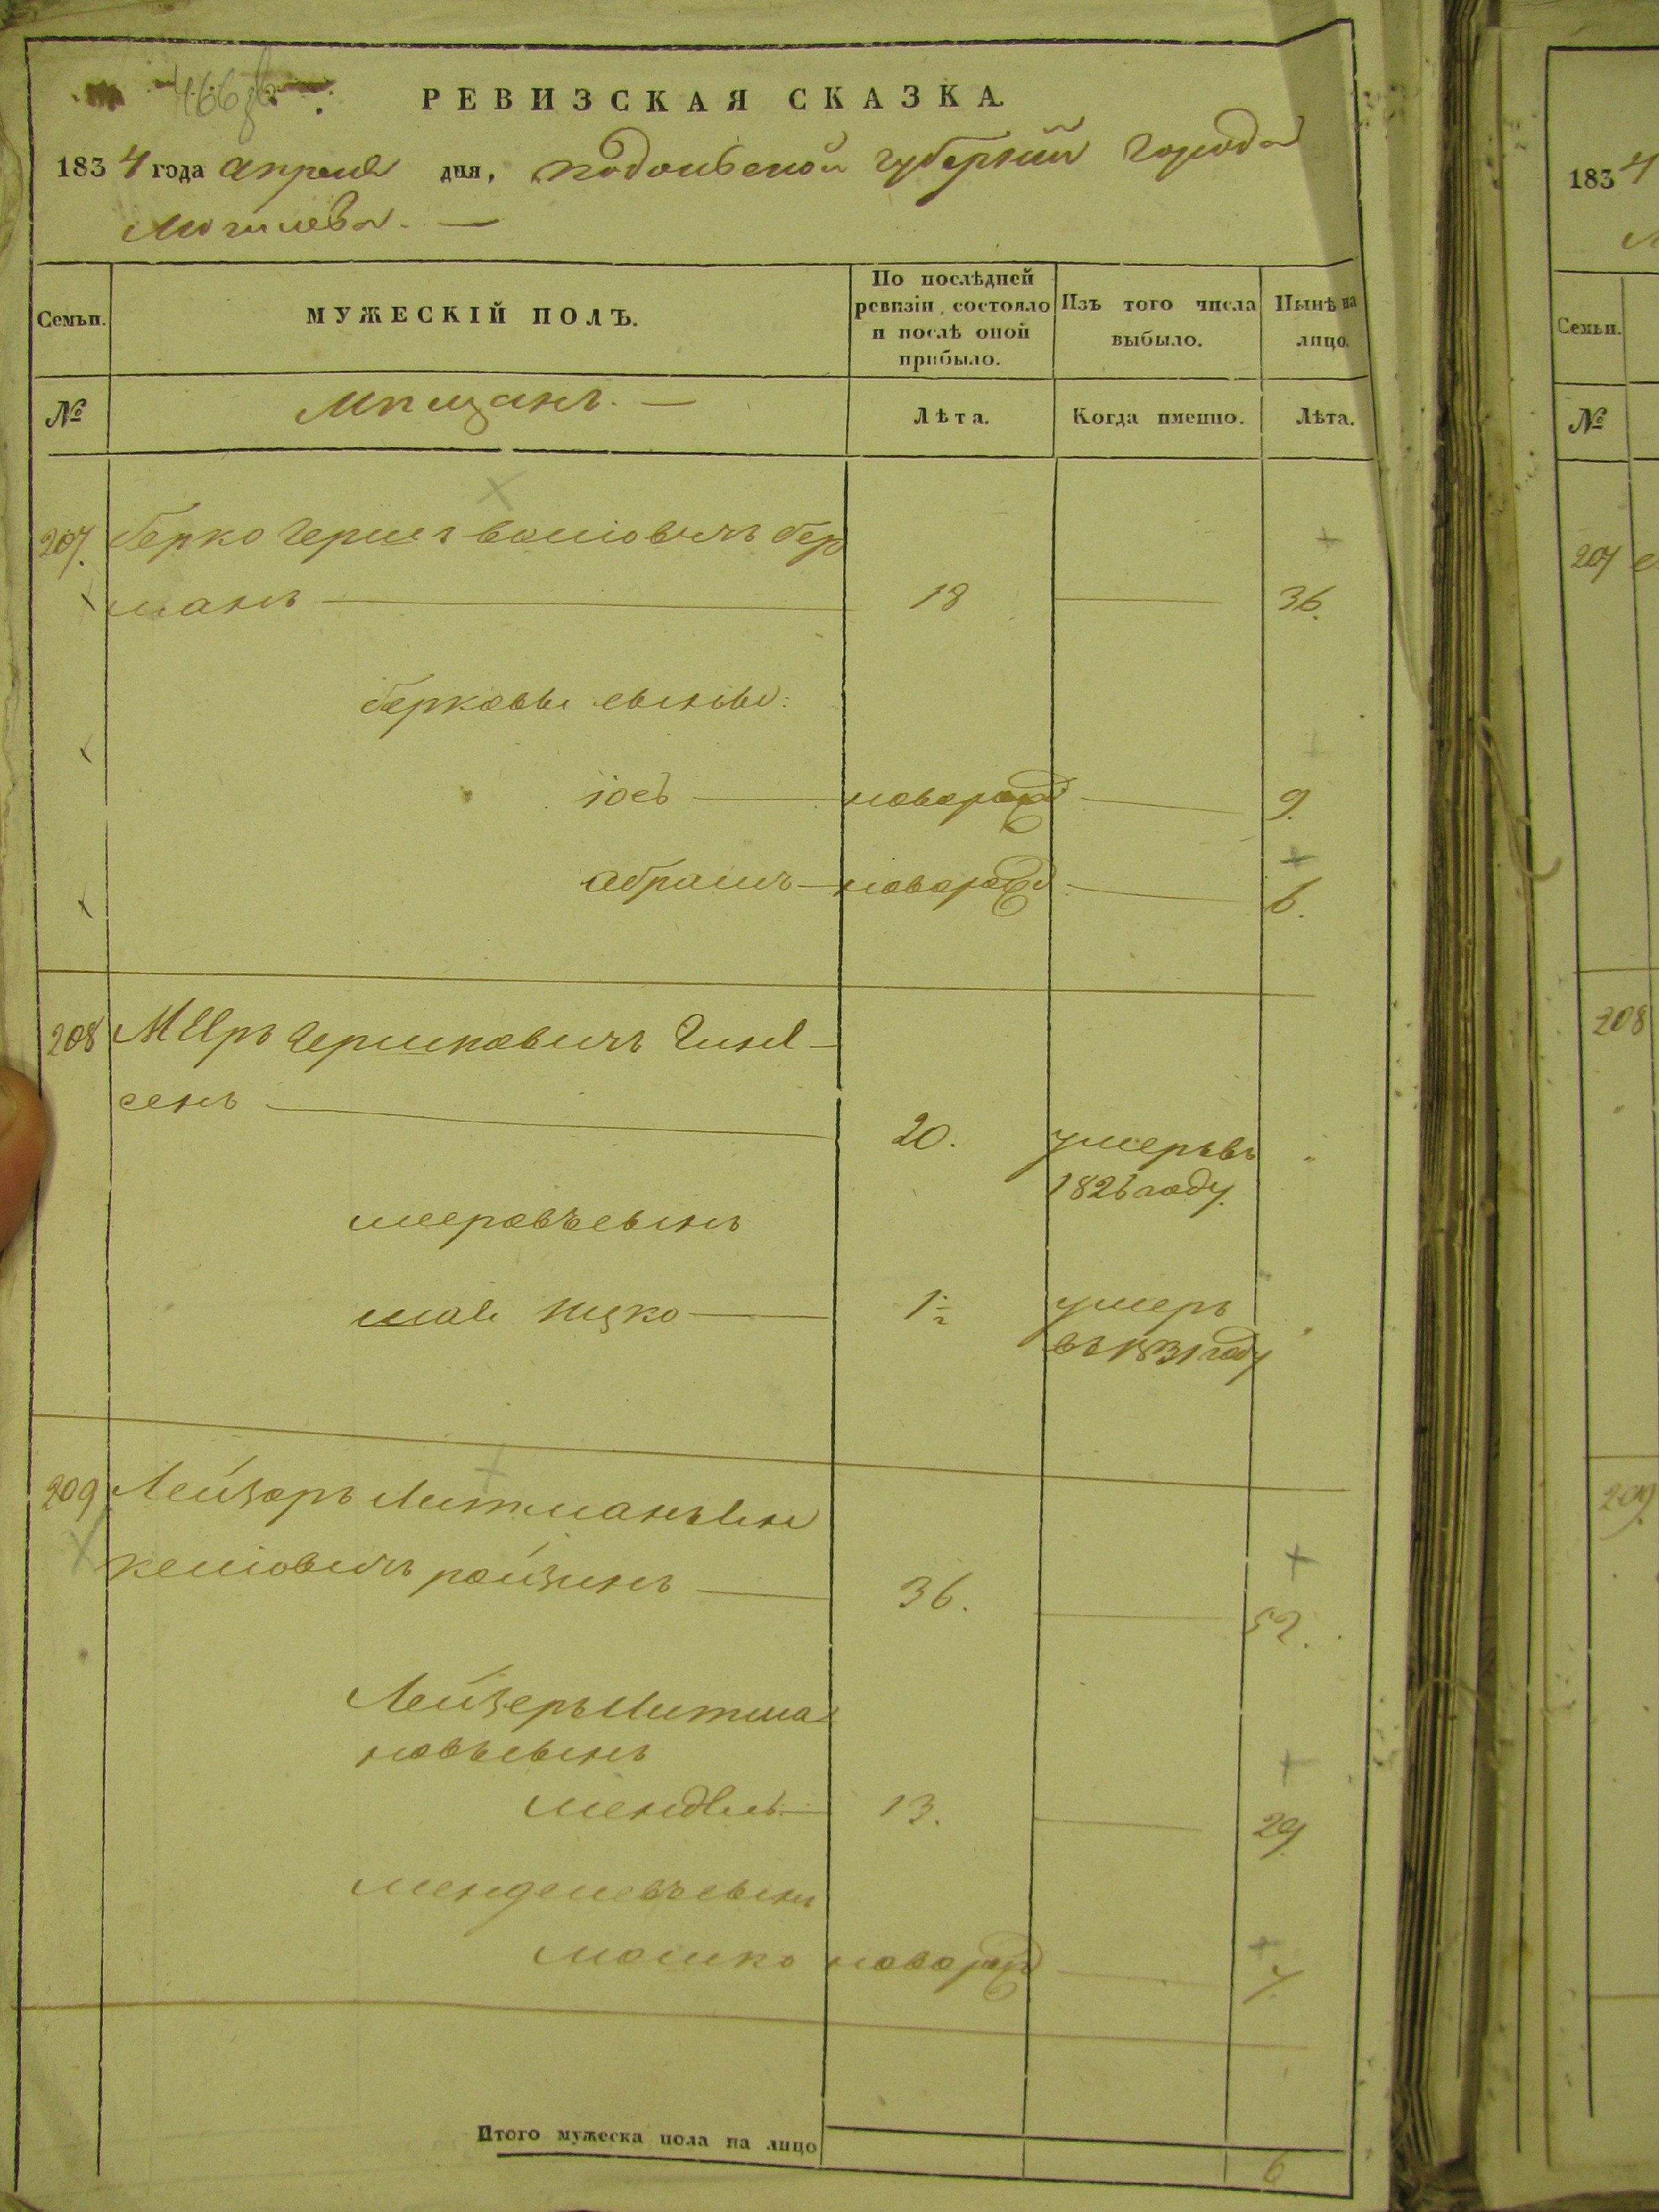 РЕВИЗСКАЯ СКАЗКА.
1834 года апреля дня, Подольской губернии города
Могилева. —
Семьи. МУЖЕСКІЙ ПОЛЪ. По послѣдней ревизіи, состояло и послѣ оной прибыло. Изъ того числа выбыло. Нынѣ на лицо.
№ Мещанъ. — Лѣта. Когда именно. Лѣта.
207. Берко Герш Воліовичъ Бер
манъ 18 36.
Берковы сыны:
Іосъ новорожд 9.
Абрамъ новорожд 6.
208 Меиръ Гершковичъ Гинз
сенъ 20. умеръ въ
1826 году.
Мееровъ сынъ
Ицко 1½ умеръ
въ 1831 году
209 Лейзеръ Литманъ
райзинъ 36. 52.
Лейзеръ Литма
новъ сынъ
Мендель 13. 29.
Менделевъ сынъ
Мошко новорожд 7.
Итого мужеска пола на лицо 6
1834
207
208
209
Семьи.
№